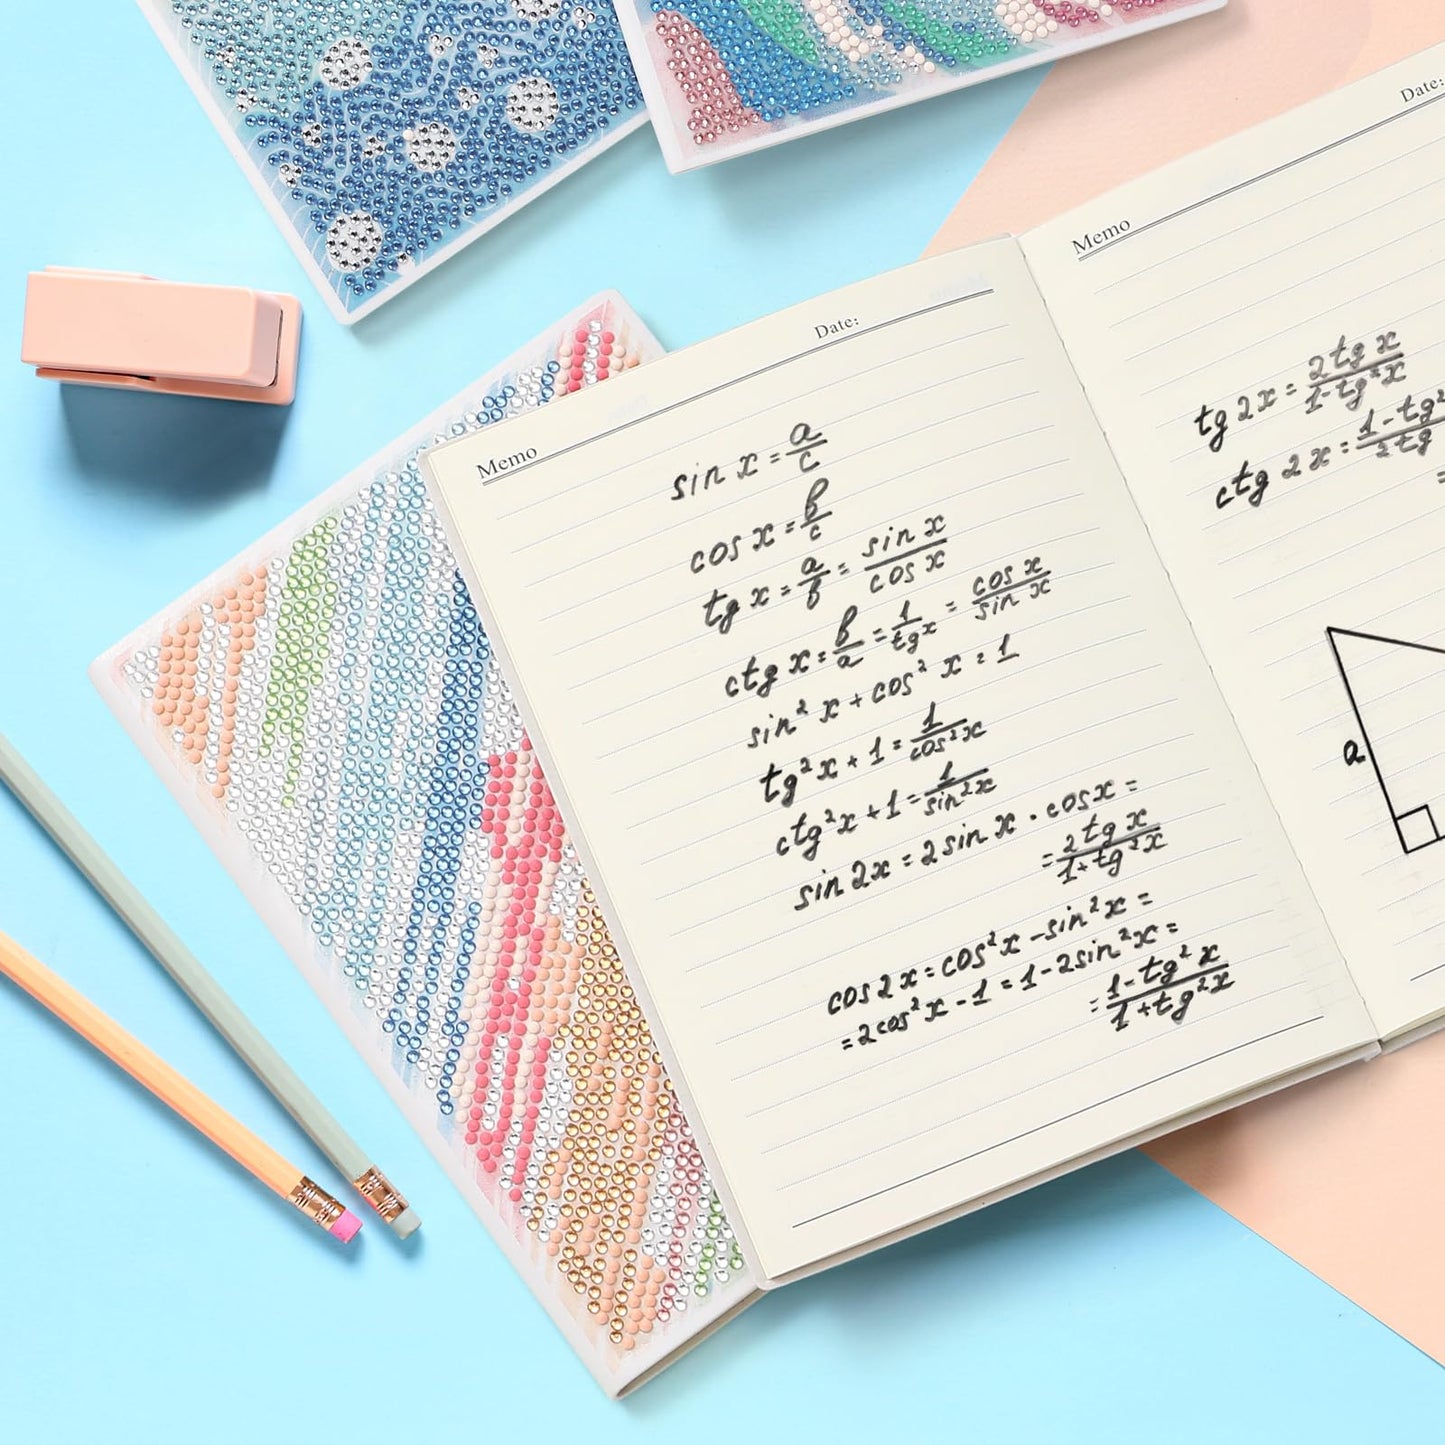 Memo
Date:
sin x = a/c
cos x = b/c
tg x = a/b = sin x/cos x
ctg x = b/a = 1/tg x = cos x/sin x
sin² x + cos² x = 1
tg² x + 1 = 1/cos² x
ctg² x + 1 = 1/sin² x
sin 2x = 2 sin x · cos x =
= 2 tg x/1 + tg² x
cos 2x = cos² x - sin² x =
= 2 cos² x - 1 = 1 - 2 sin² x =
= 1 - tg² x/1 + tg² x
Memo
Date:
tg 2x = 2 tg x/1 - tg² x
ctg 2x = 1 - tg²/2 tg
=
a